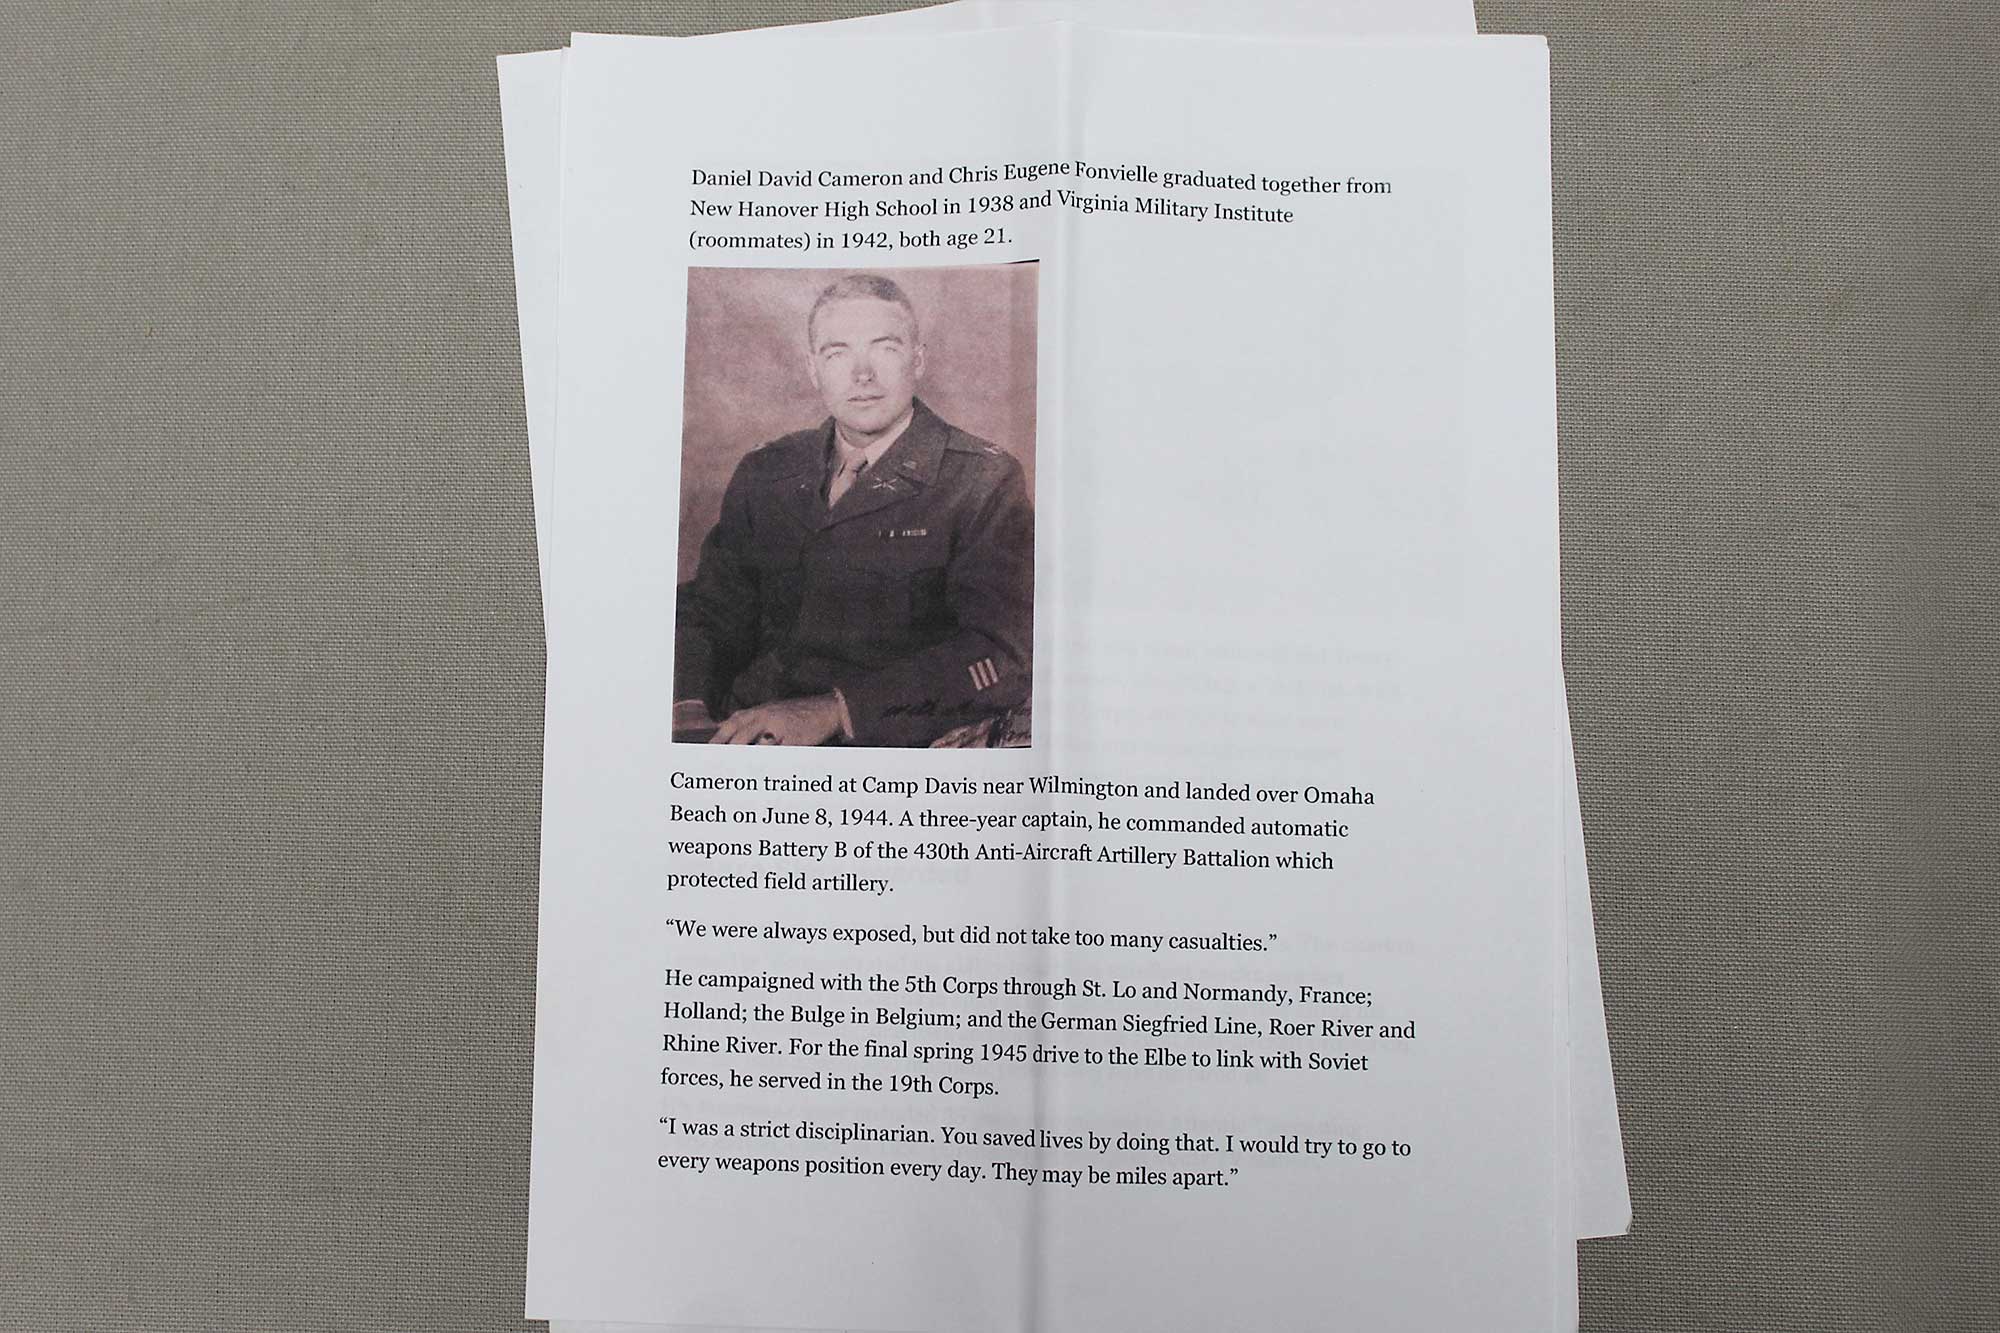 Daniel David Cameron and Chris Eugene Fonvielle graduated together from
New Hanover High School in 1938 and Virginia Military Institute
(roommates) in 1942, both age 21.
Cameron trained at Camp Davis near Wilmington and landed over Omaha
Beach on June 8, 1944. A three-year captain, he commanded automatic
weapons Battery B of the 430th Anti-Aircraft Artillery Battalion which
protected field artillery.
“We were always exposed, but did not take too many casualties.”
He campaigned with the 5th Corps through St. Lo and Normandy, France;
Holland; the Bulge in Belgium; and the German Siegfried Line, Roer River and
Rhine River. For the final spring 1945 drive to the Elbe to link with Soviet
forces, he served in the 19th Corps.
“I was a strict disciplinarian. You saved lives by doing that. I would try to go to
every weapons position every day. They may be miles apart.”